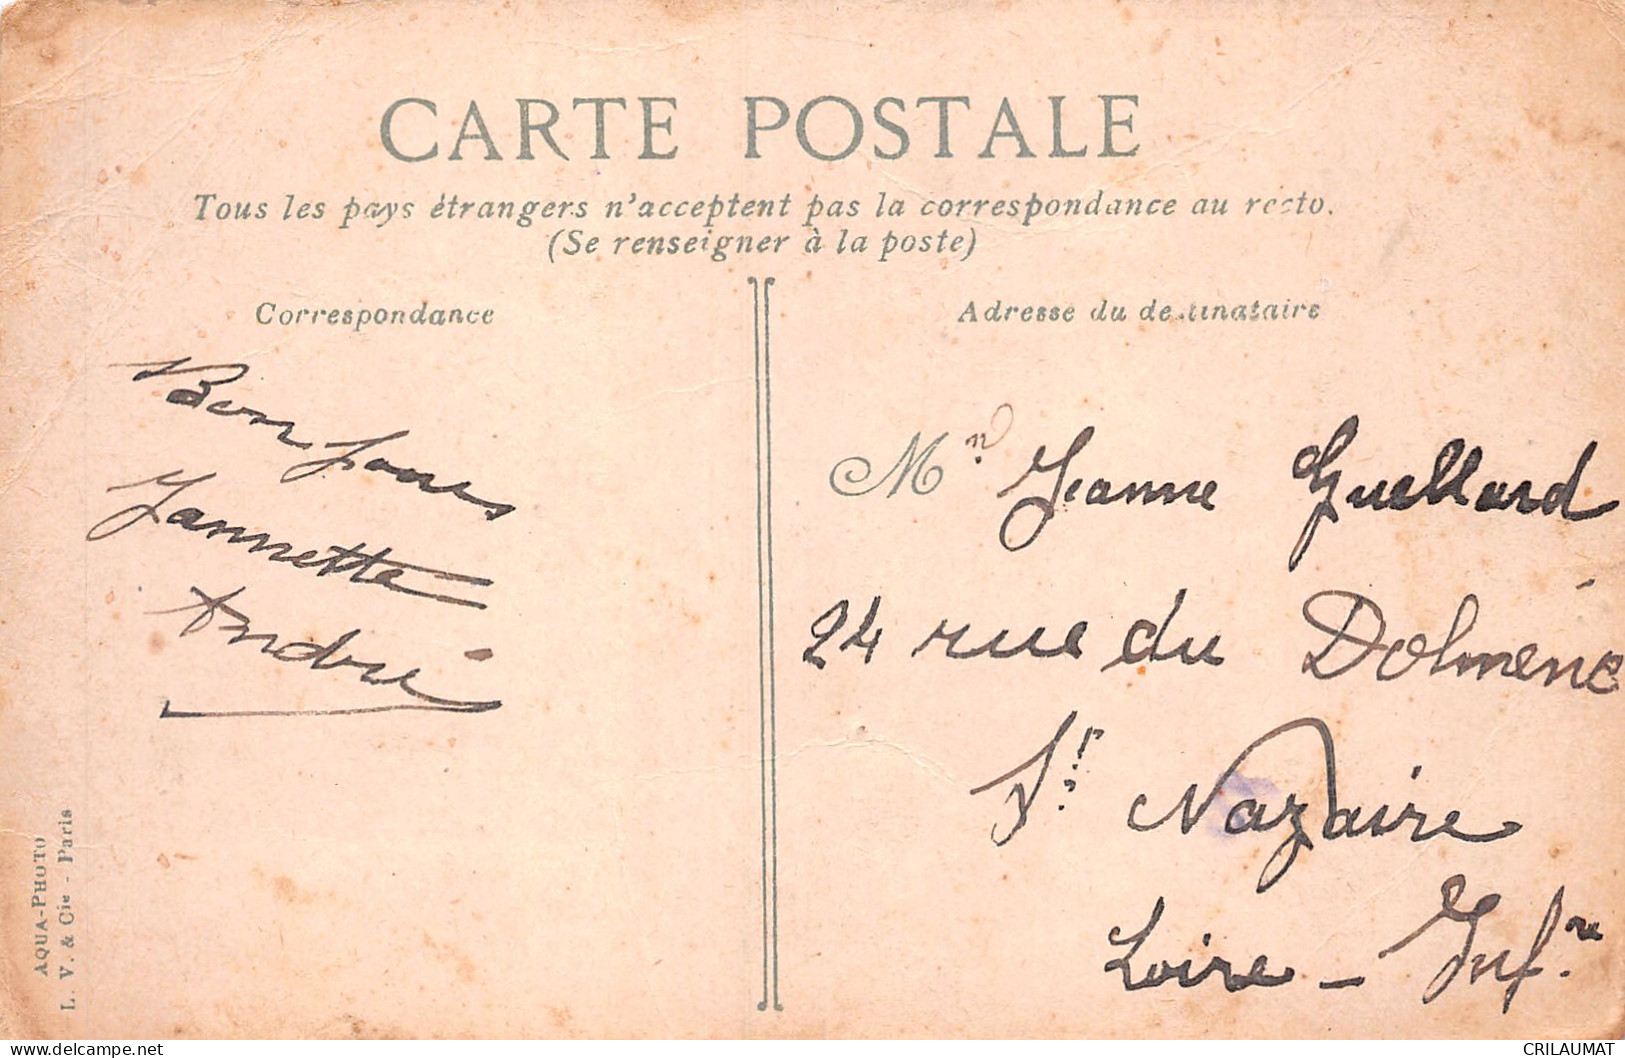 CARTE POSTALE
Tous les pays étrangers n'acceptent pas la correspondance au recto.
(Se renseigner à la poste)
Correspondance
Bon jour
Jannette
André
Adresse du destinataire
M Jeanne Guellard
24 rue du Dolméne
St Nazaire
Loire - Infre
AQUA-PHOTO
L. V. & Cie - Paris
CRILAUMAT